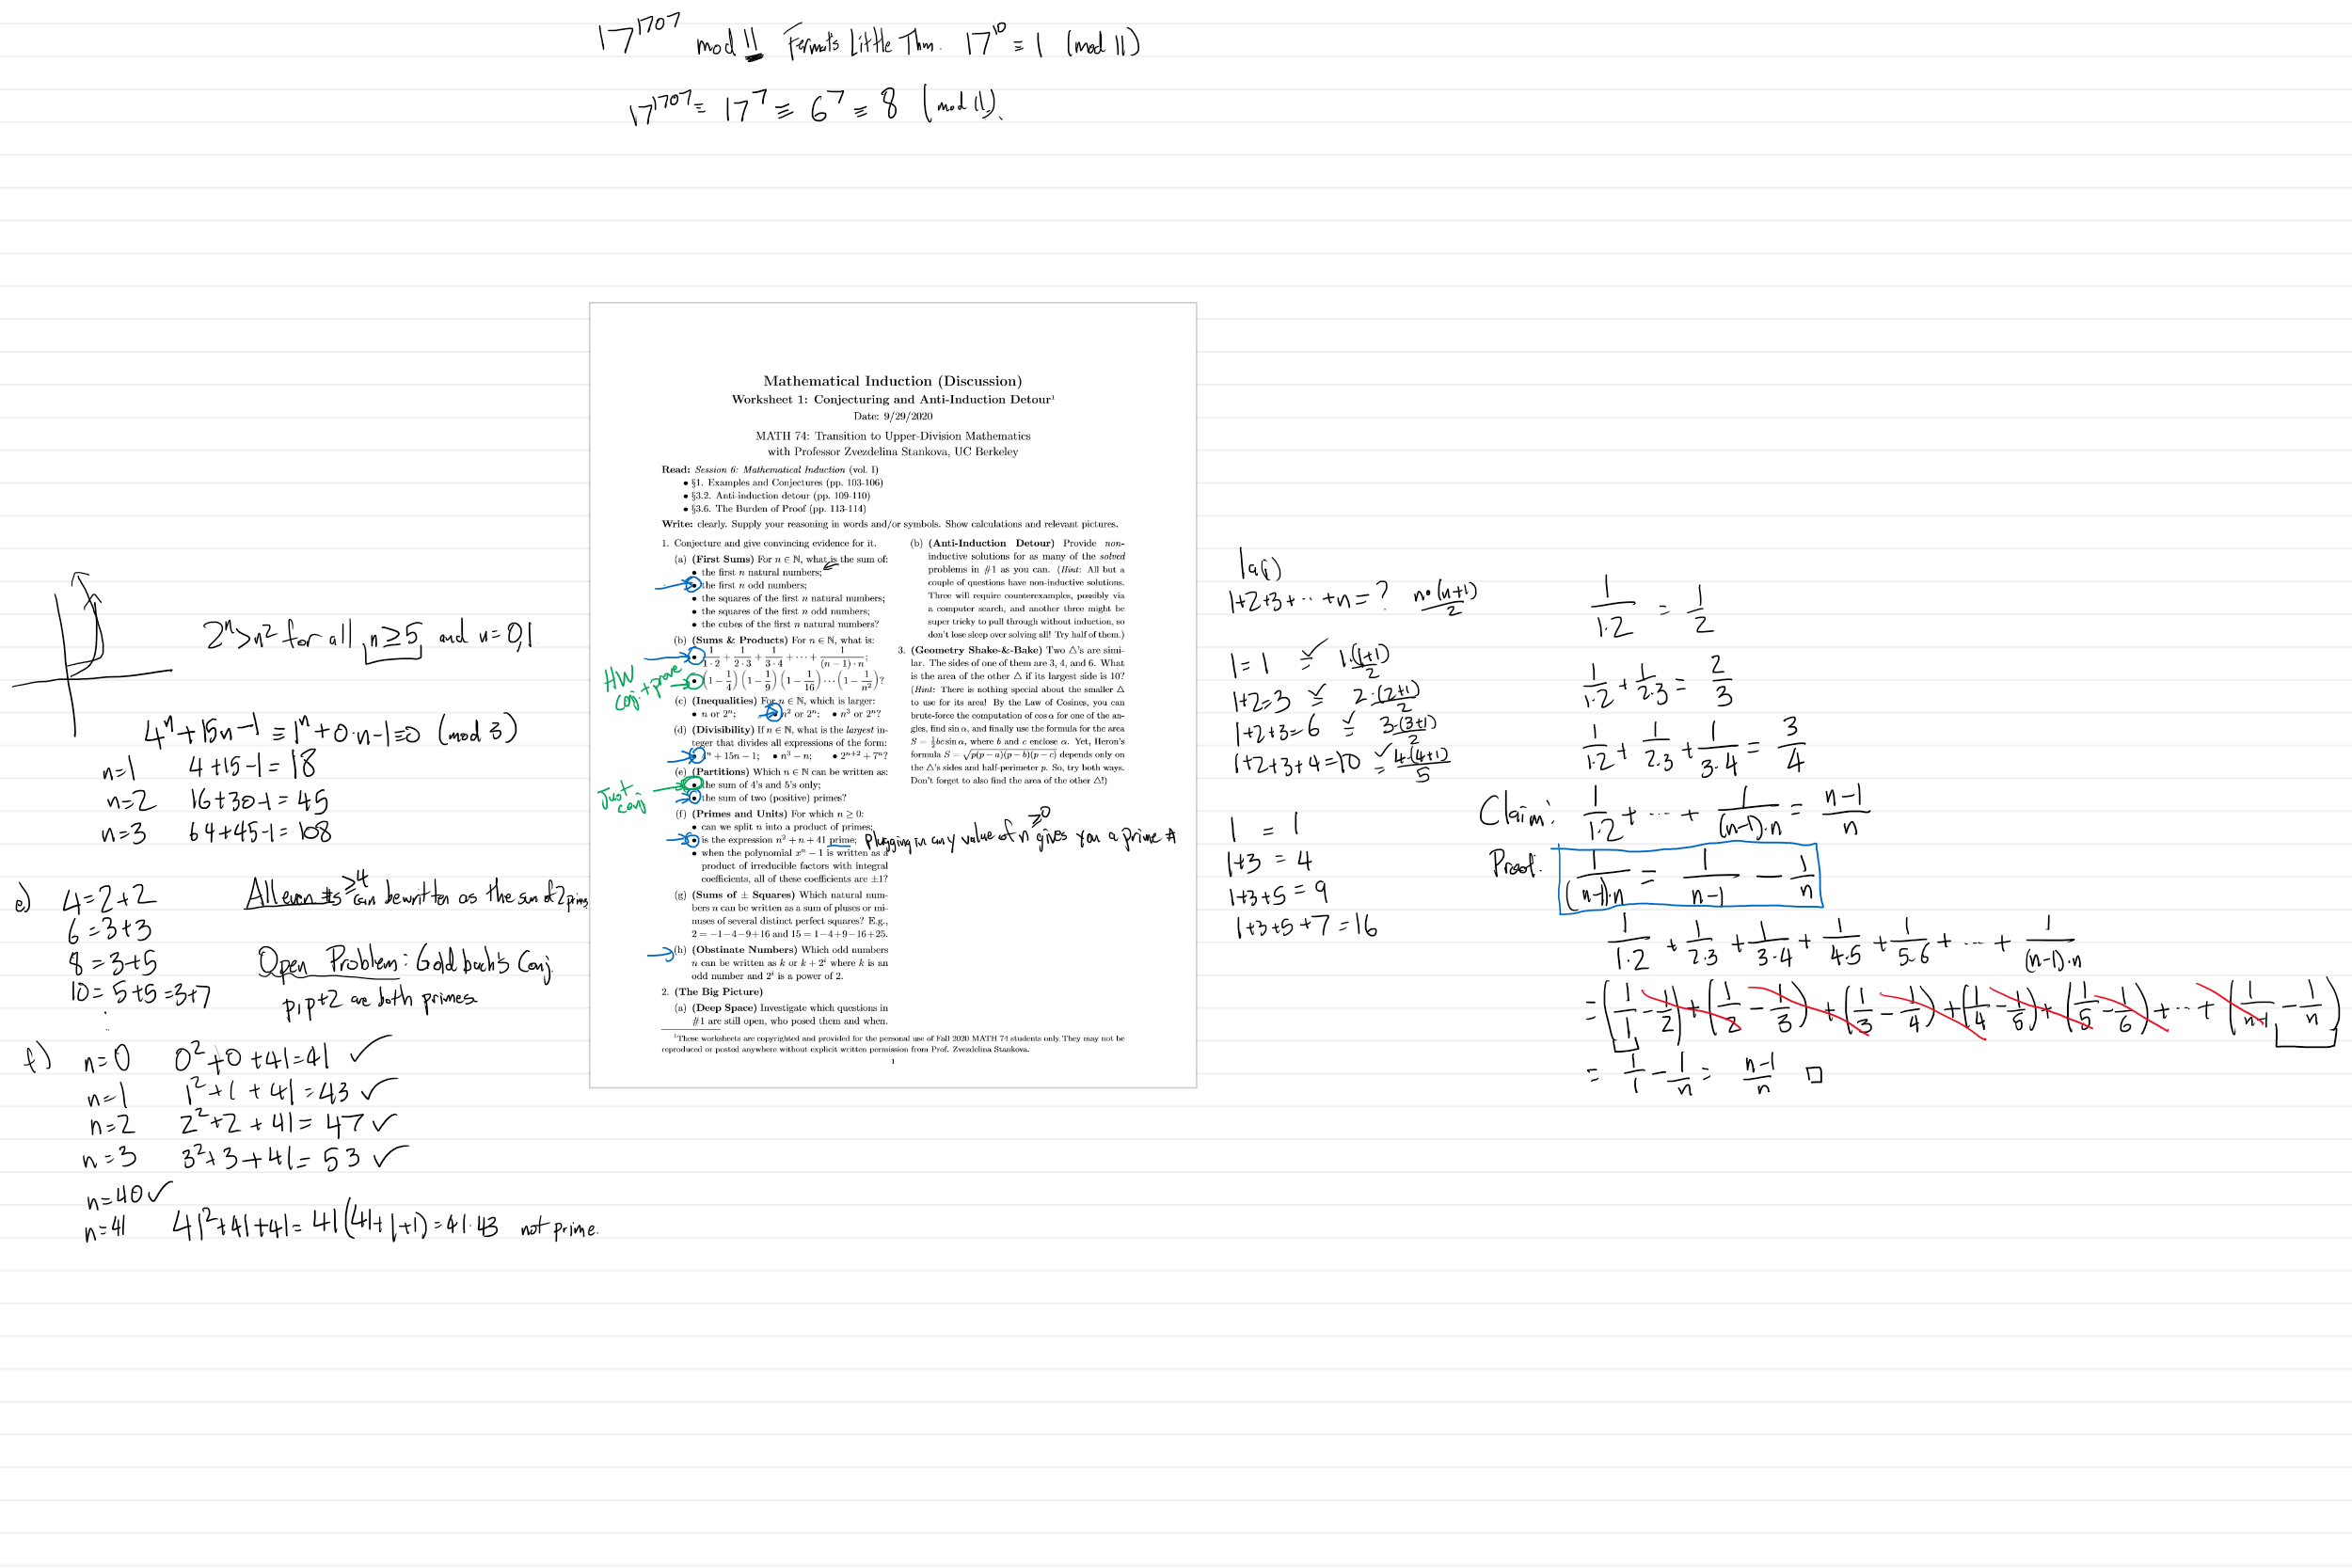 17^1707 mod 11 Fermat's Little Thm. 17^10 ≡ 1 (mod 11)
17^1707 ≡ 17^7 ≡ 6^7 ≡ 8 (mod 11).
Mathematical Induction (Discussion)
Worksheet 1: Conjecturing and Anti-Induction Detour¹
Date: 9/29/2020
MATH 74: Transition to Upper-Division Mathematics
with Professor Zvezdelina Stankova, UC Berkeley
Read: Session 6: Mathematical Induction (vol. I)
• §1. Examples and Conjectures (pp. 103-106)
• §3.2. Anti-induction detour (pp. 109-110)
• §3.6. The Burden of Proof (pp. 113-114)
Write: clearly. Supply your reasoning in words and/or symbols. Show calculations and relevant pictures.
1. Conjecture and give convincing evidence for it.
(a) (First Sums) For n ∈ ℕ, what is the sum of:
• the first n natural numbers;
• the first n odd numbers;
• the squares of the first n natural numbers;
• the squares of the first n odd numbers;
• the cubes of the first n natural numbers?
(b) (Sums & Products) For n ∈ ℕ, what is:
• 1/(1·2) + 1/(2·3) + 1/(3·4) + ⋯ + 1/((n−1)·n);
HW conj. + prove
• (1 − 1/4)(1 − 1/9)(1 − 1/16)⋯(1 − 1/n²)?
(c) (Inequalities) For n ∈ ℕ, which is larger:
• n or 2ⁿ; • n² or 2ⁿ; • n³ or 2ⁿ?
(d) (Divisibility) If n ∈ ℕ, what is the largest in-
teger that divides all expressions of the form:
• 4ⁿ + 15n − 1; • n³ − n; • 2ⁿ⁺² + 7ⁿ?
(e) (Partitions) Which n ∈ ℕ can be written as:
Just conj
• the sum of 4's and 5's only;
• the sum of two (positive) primes?
(f) (Primes and Units) For which n ≥ 0:
• can we split n into a product of primes;
• is the expression n² + n + 41 prime; Plugging in any value of n ≥0 gives you a prime #
• when the polynomial xⁿ − 1 is written as a
product of irreducible factors with integral
coefficients, all of these coefficients are ±1?
(g) (Sums of ± Squares) Which natural num-
bers n can be written as a sum of pluses or mi-
nuses of several distinct perfect squares? E.g.,
2 = −1−4−9+16 and 15 = 1−4+9−16+25.
(h) (Obstinate Numbers) Which odd numbers
n can be written as k or k + 2ⁱ where k is an
odd number and 2ⁱ is a power of 2.
2. (The Big Picture)
(a) (Deep Space) Investigate which questions in
#1 are still open, who posed them and when.
(b) (Anti-Induction Detour) Provide non-
inductive solutions for as many of the solved
problems in #1 as you can. (Hint: All but a
couple of questions have non-inductive solutions.
Three will require counterexamples, possibly via
a computer search, and another three might be
super tricky to pull through without induction, so
don't lose sleep over solving all! Try half of them.)
3. (Geometry Shake-&-Bake) Two △'s are simi-
lar. The sides of one of them are 3, 4, and 6. What
is the area of the other △ if its largest side is 10?
(Hint: There is nothing special about the smaller △
to use for its area! By the Law of Cosines, you can
brute-force the computation of cos α for one of the an-
gles, find sin α, and finally use the formula for the area
S = ½bc sin α, where b and c enclose α. Yet, Heron's
formula S = √p(p − a)(p − b)(p − c) depends only on
the △'s sides and half-perimeter p. So, try both ways.
Don't forget to also find the area of the other △!)
¹These worksheets are copyrighted and provided for the personal use of Fall 2020 MATH 74 students only. They may not be
reproduced or posted anywhere without explicit written permission from Prof. Zvezdelina Stankova.
1
2ⁿ>n² for all n≥5 and n=0,1
4ⁿ+15n−1 ≡ 1ⁿ+0·n−1≡0 (mod 3)
n=1 4+15−1=18
n=2 16+30−1=45
n=3 64+45−1=108
e) 4=2+2
6=3+3
8=3+5
10=5+5=3+7
⋮
All even #s ≥4 can be written as the sum of 2 primes
Open Problem: Goldbach's Conj.
p, p+2 are both primes
f) n=0 0²+0+41=41 ✓
n=1 1²+1+41=43 ✓
n=2 2²+2+41=47 ✓
n=3 3²+3+41=53 ✓
n=40 ✓
n=41 41²+41+41=41(41+1+1)=41·43 not prime.
1a(i)
1+2+3+⋯+n=? n·(n+1)/2
1=1 ✓= 1·(1+1)/2
1+2=3 ✓= 2·(2+1)/2
1+2+3=6 ✓= 3·(3+1)/2
1+2+3+4=10 ✓= 4·(4+1)/5
1 = 1
1+3 = 4
1+3+5 = 9
1+3+5+7=16
1/(1·2) = 1/2
1/(1·2) + 1/(2·3) = 2/3
1/(1·2) + 1/(2·3) + 1/(3·4) = 3/4
Claim: 1/(1·2) + ⋯ + 1/((n−1)·n) = (n−1)/n
Proof: 1/((n−1)·n) = 1/(n−1) − 1/n
1/(1·2) + 1/(2·3) + 1/(3·4) + 1/(4·5) + 1/(5·6) + ⋯ + 1/((n−1)·n)
= (1/1 − 1/2) + (1/2 − 1/3) + (1/3 − 1/4) + (1/4 − 1/5) + (1/5 − 1/6) + ⋯ + (1/(n−1) − 1/n)
= 1/1 − 1/n = (n−1)/n □